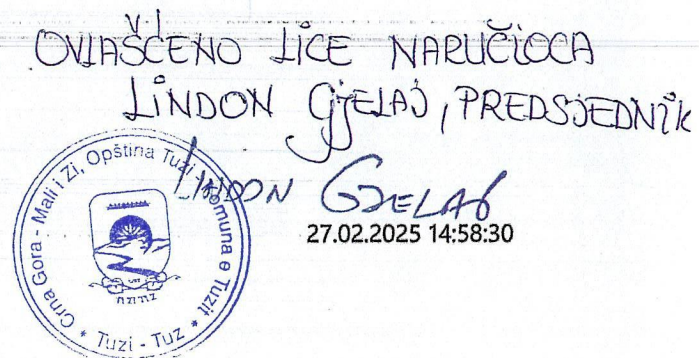 OVLAŠĆENO LICE NARUČIOCA
LINDON GJELAJ, PREDSJEDNIK
LINDON GJELAJ
27.02.2025 14:58:30
Crna Gora - Mali i Zi, Opština Tuzi - Komuna e Tuzit
* Tuzi - Tuz *